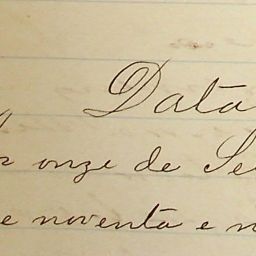 Data
onze de Se
e noventa e n